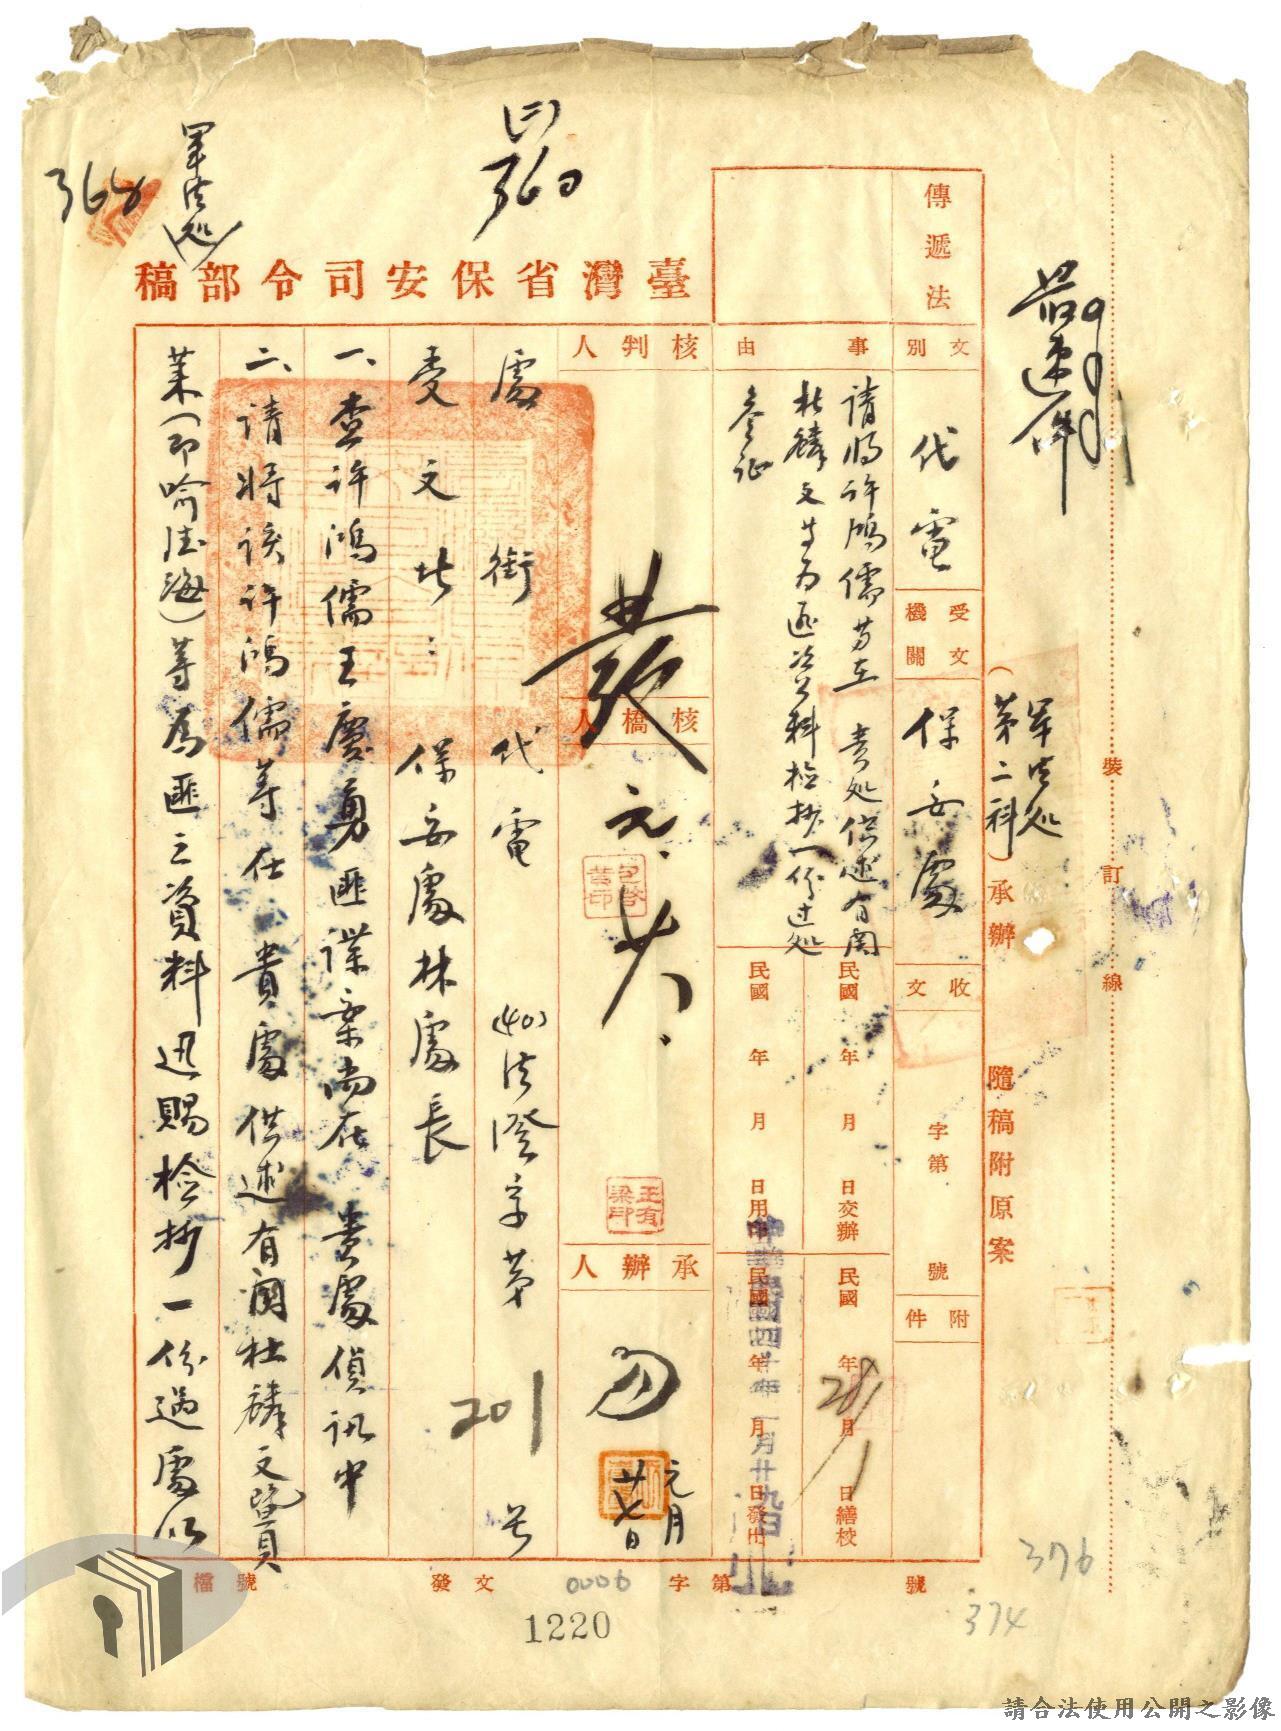 最速件
裝訂線
（軍法处第二科）承辦
隨稿附原案
傳遞法
文別
代電
受文機關
保安處
收文
字第
號
附件
事由
請將許鴻儒等在 貴处供述有関
杜麟文等為匪資料检抄一份过处
參证
民國 年 月 日交辦
民國 年 月 日繕校
28/1
民國 年 月 日用印
民國 年 月 日發出
中華民國四十年一月廿九日
臺灣省保安司令部稿
(二)
360
軍法处
368
核判人
核稿人
元.廿八.
承辦人
元月廿七日
處銜代電 (40)法澄字第 201 号
受文者：保安處林處長
一、查許鴻儒王慶勇匪諜案尚在 貴處偵訊中
二、請將該許鴻儒等在 貴處供述有関杜麟文暨貢
某（即喻德海）等為匪之資料迅賜检抄一份過處以
檔號
發文 字第 號
0006
1220
376
374
請合法使用公開之影像